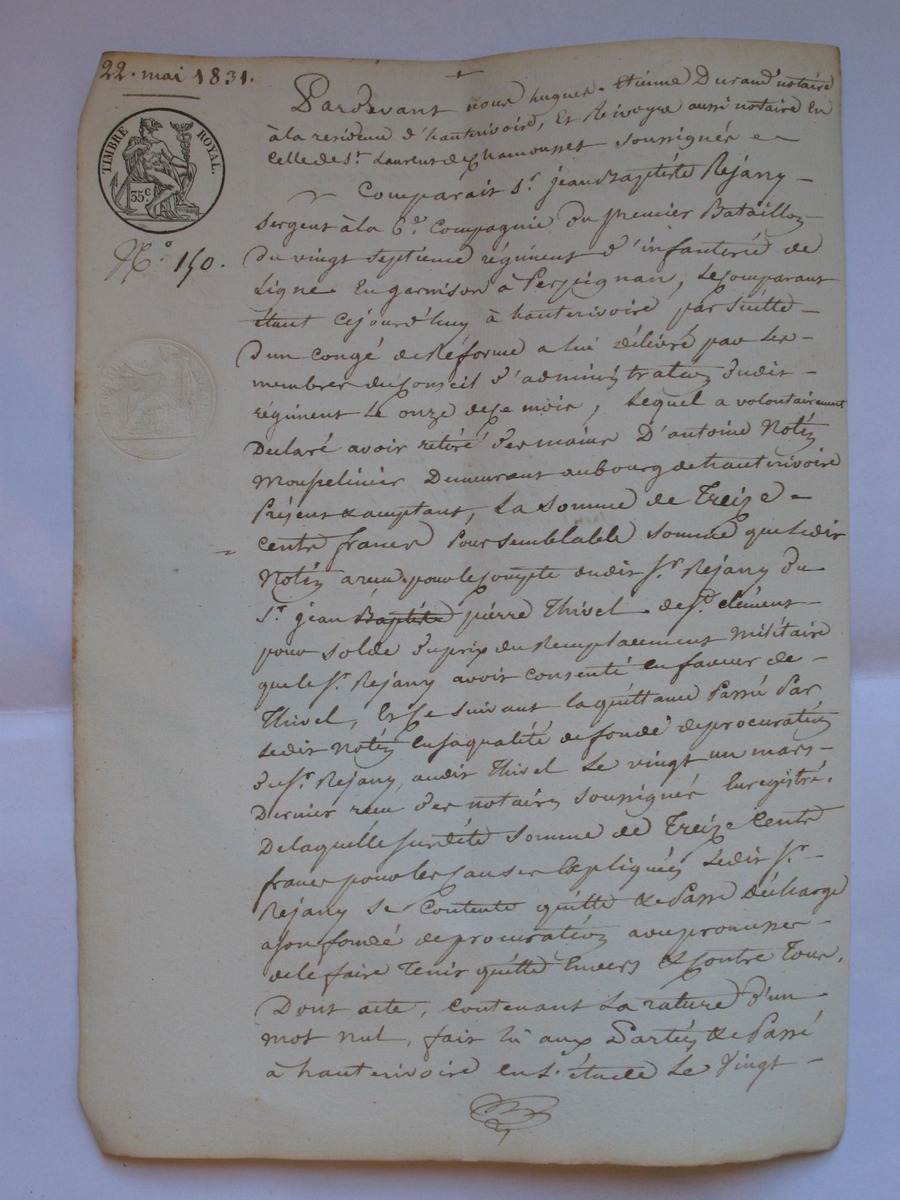 22. mai 1831.
TIMBRE ROYAL.
35 c.
N.° 150.
Pardevant nous hugues-Etienne Durand notaire
à la residence d'hauterivoire, Et Rivoyre aussi notaire En
Celle de St. Laurent de Chamousset soussignés
Comparait Sr. jean Baptiste Rejany
Sergent à la 6e. Compagnie du premier Bataillon
du vingt septieme régiment d'infanterie de
Ligne En garnison à Perpignan, le Comparant
Etant Cejourd'huy à hauterivoire par suitte
d'un Congé de Réforme a lui délivré par les
membres du Conseil d'administration dudit
régiment le onze de Ce mois, lequel a volontairement
Declaré avoir retiré des mains D'antoine Notin
Demeurant au bourg de hauterivoire
Présent & acceptant, la somme de Treize
Cents francs Pour semblable somme que ledit
Notin a reçu pour le Compte dudit Sr. Rejany du
Sr. jean Baptiste pierre Thivel de St. Clément
pour solde du prix du Remplacement militaire
que le Sr. Rejany avoit Consenti En faveur de
Thivel, Et Ce suivant la quittance Passé Par
ledit Notin En sa qualité de fondé de procuration
du Sr. Rejany, audit Thivel le vingt un mars
Dernier reçu des notaires soussignés Enregistré.
De laquelle susdite somme de Treize Cents
francs pour les Causes Expliquées ledit Sr.
Rejany se Contente quitte & Passe décharge
a son fondé de procuration avec promesse
de le faire Tenir quitte Envers & Contre Tous.
Dont acte, Contenant la rature d'un
mot nul, fait lû aux Parties & Passé
à hauterivoire En l'étude le Vingt